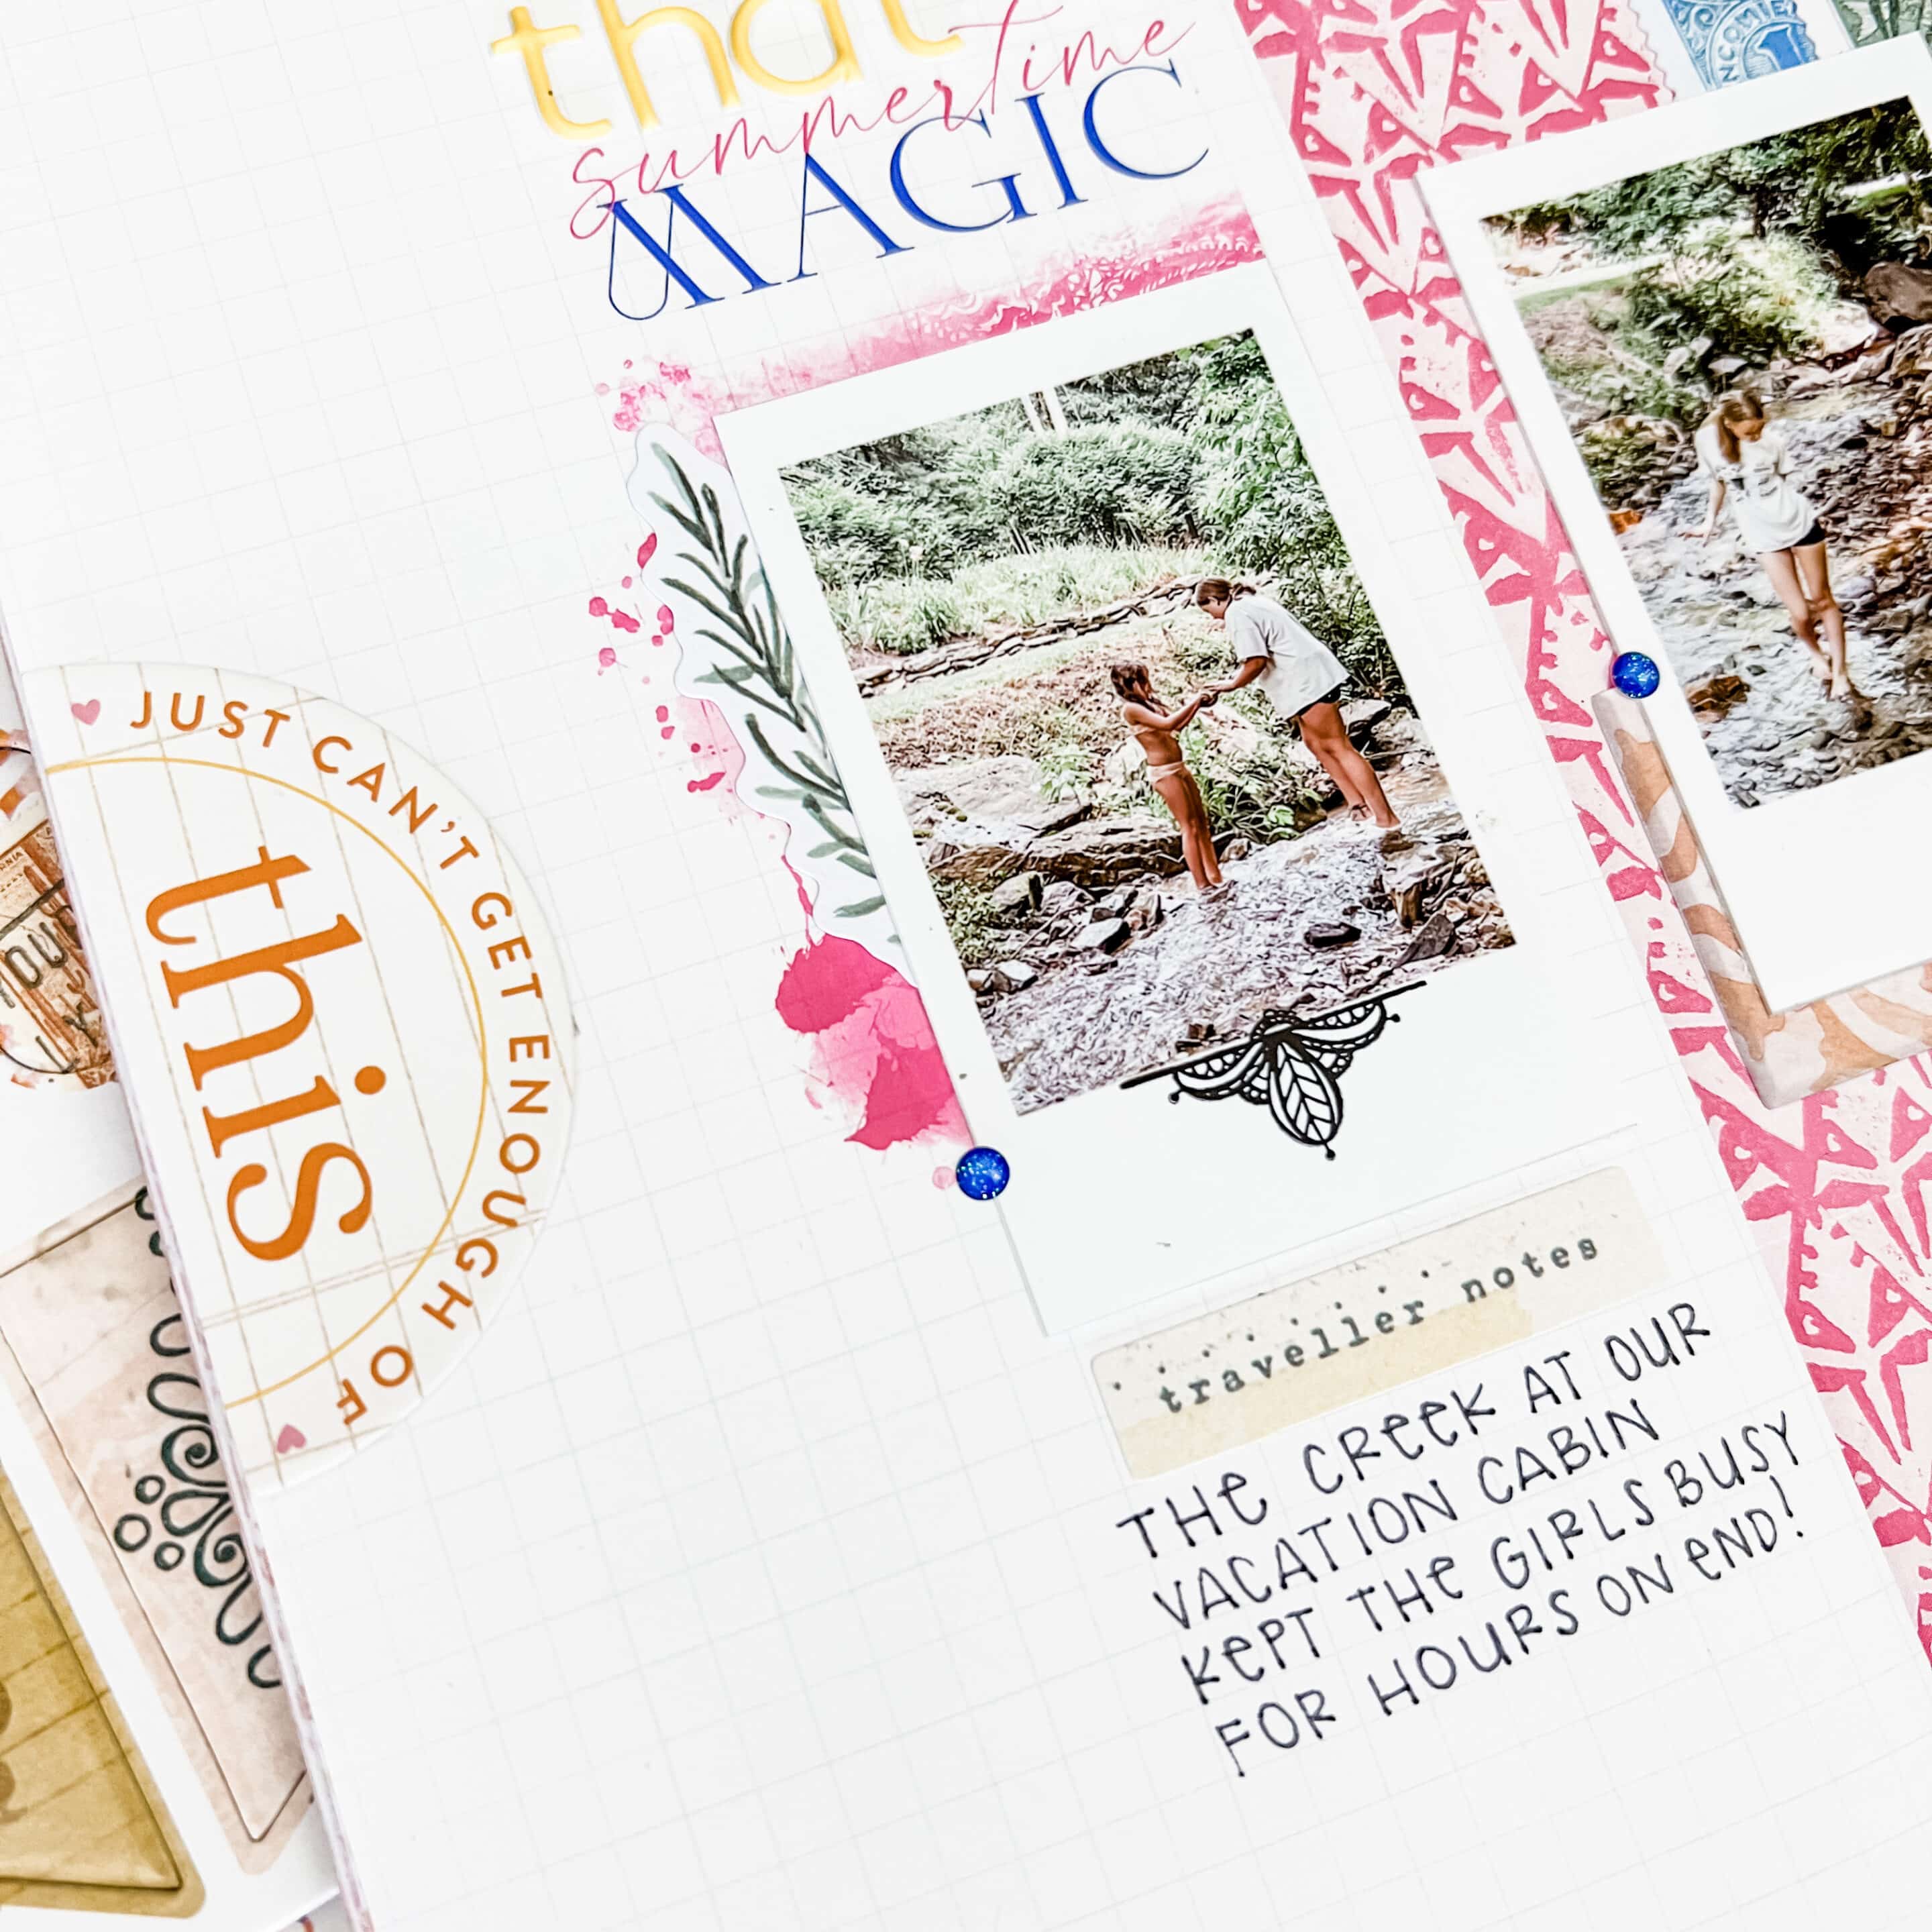 that
summertime
MAGIC
JUST CAN'T GET ENOUGH OF
this
traveller notes
THE CREEK AT OUR
VACATION CABIN
KEPT THE GIRLS BUSY
FOR HOURS ON END!